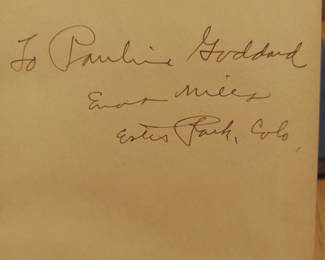 To Pauline Goddard
Enos Mills
Estes Park, Colo.